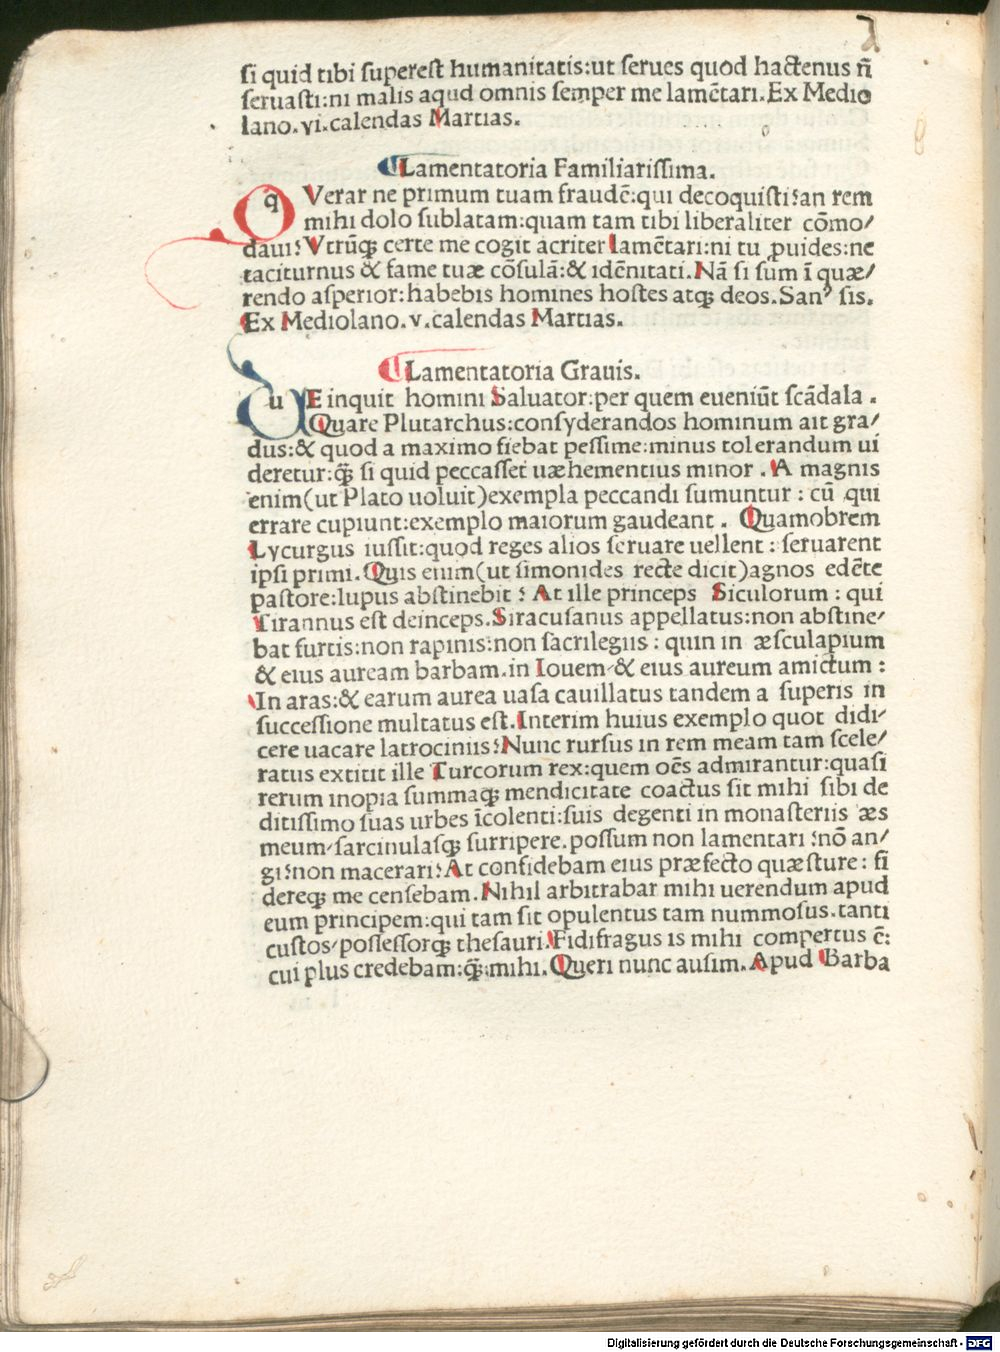 si quid tibi superest humanitatis:ut serues quod hactenus n̄
seruasti:ni malis aqud omnis semper me lamētari.Ex Medio
lano.vi.calendas Martias.
Lamentatoria Familiarissima.
q Verar ne primum tuam fraudē:qui decoquisti?an rem
mihi dolo sublatam:quam tam tibi liberaliter cōmo/
daui?Vtrūq; certe me cogit acriter lamētari:ni tu ꝓuides:ne
taciturnus & fame tuæ cōsulā:& idēnitati.Nā si sum ī quæ/
rendo asperior:habebis homines hostes atq; deos.Sanꝰ sis.
Ex Mediolano.v.calendas Martias.
Lamentatoria Grauis.
u E inquit homini Saluator:per quem eueniūt scādala.
Quare Plutarchus:consyderandos hominum ait gra/
dus:& quod a maximo fiebat pessime:minus tolerandum ui
deretur:q̄; si quid peccasset uæhementius minor. A magnis
enim(ut Plato uoluit)exempla peccandi sumuntur: cū qui
errare cupiunt:exemplo maiorum gaudeant. Quamobrem
Lycurgus iussit:quod reges alios seruare uellent: seruarent
ipsi primi.Quis enim(ut simonides recte dicit)agnos edēte
pastore:lupus abstinebit? At ille princeps Siculorum: qui
Tirannus est deinceps.Siracusanus appellatus:non abstine/
bat furtis:non rapinis:non sacrilegiis: quin in æsculapium
& eius auream barbam.in Iouem/& eius aureum amictum:
In aras:& earum aurea uasa cauillatus tandem a superis in
successione multatus est.Interim huius exemplo quot didi/
cere uacare latrociniis?Nunc rursus in rem meam tam scele/
ratus extitit ille Turcorum rex:quem oēs admirantur:quasi
rerum inopia summaq; mendicitate coactus sit mihi sibi de
ditissimo suas urbes īcolenti:suis degenti in monasteriis æs
meum/sarcinulasq; surripere.possum non lamentari?nō an/
gi?non macerari?At confidebam eius præfecto quæsture: fi
dereq; me censebam.Nihil arbitrabar mihi uerendum apud
eum principem:qui tam sit opulentus tam nummosus.tanti
custos/possessorq; thesauri.Fidifragus is mihi compertus ē:
cui plus credebam:q̄;mihi.Queri nunc ausim.Apud Barba
Digitalisierung gefördert durch die Deutsche Forschungsgemeinschaft - DFG